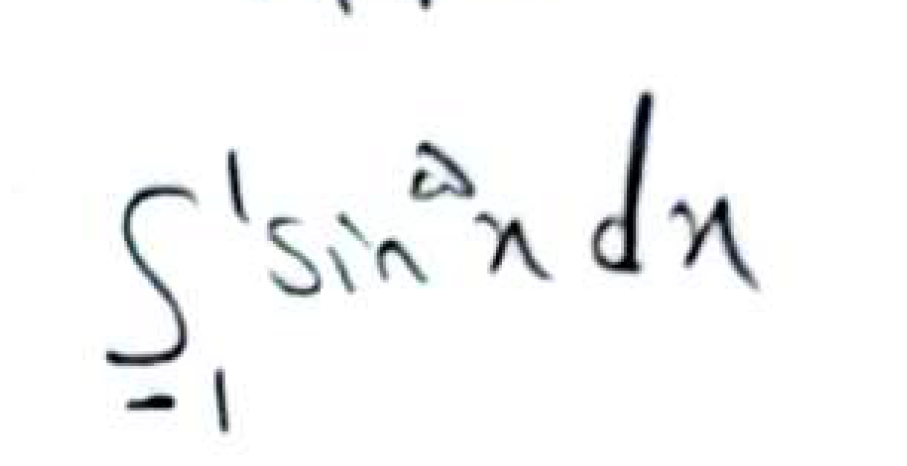 ∫₋₁¹ sin^۵ x dx